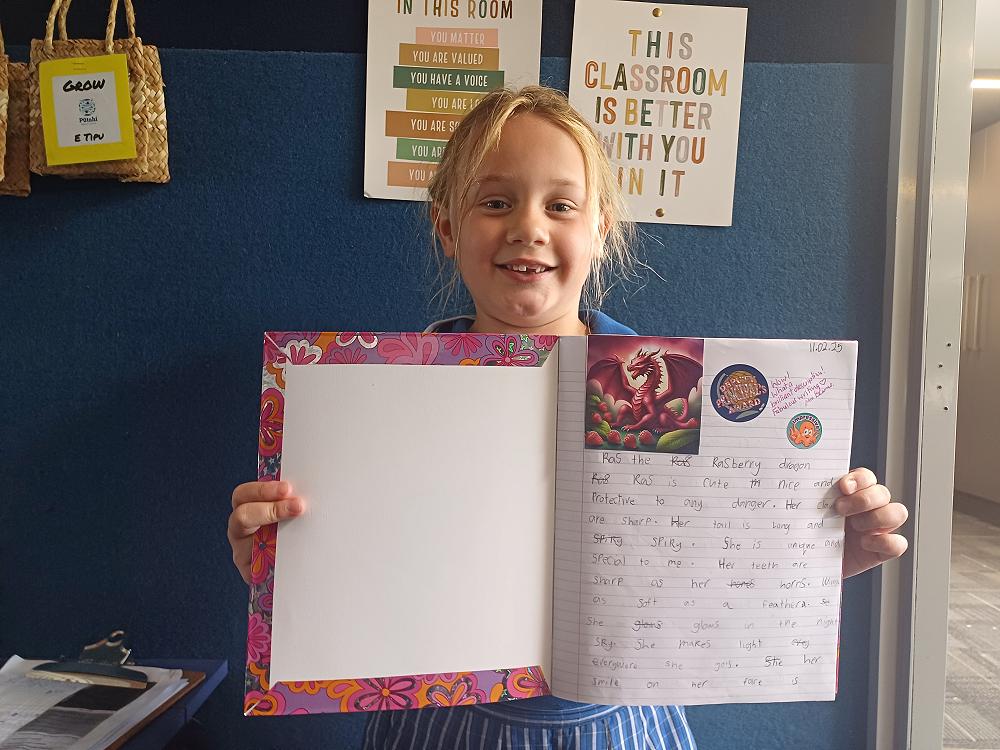 IN THIS ROOM
YOU MATTER
YOU ARE VALUED
YOU HAVE A VOICE
YOU ARE
YOU ARE
YOU ARE
YOU
THIS
CLASSROOM
IS BETTER
WITH YOU
IN IT
GROW
Pūtahi
E TIPU
11.02.25
DEPUTY
PRINCIPAL'S
AWARD
Wow!
What a
brilliant description!
Fabulous writing
Ras the Ras Rasberry dragon
Ras Ras is cute nice and
Protective to any danger. Her
are sharp. Her tail is long and
SPiRy SPiRy. She is unique and
special to me. Her teeth are
sharp as her horns horrs. Wings
as soft as a feather.
She glows glows in the night
sky. She makes light
everyware she gos. She her
smile on her face is